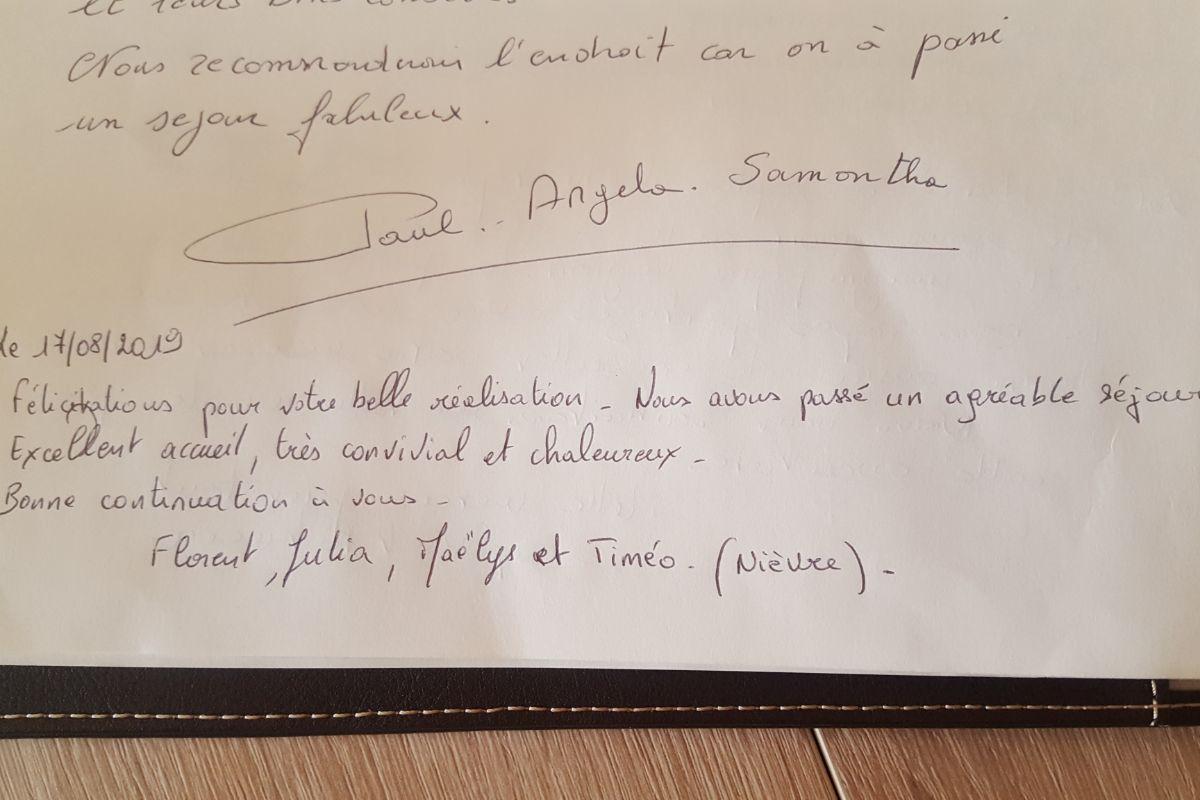 et leurs
Nous recommandrais l'endroit car on à passé
un sejour fabuleux.
Paul.. Angela. Samantha
le 17/08/2019
Félicitations pour votre belle réalisation - Nous avons passé un agréable séjour
Excellent accueil, très convivial et chaleureux -
Bonne continuation à vous -
Florent, Julia, Maëlys et Timéo. (Nièvre) -